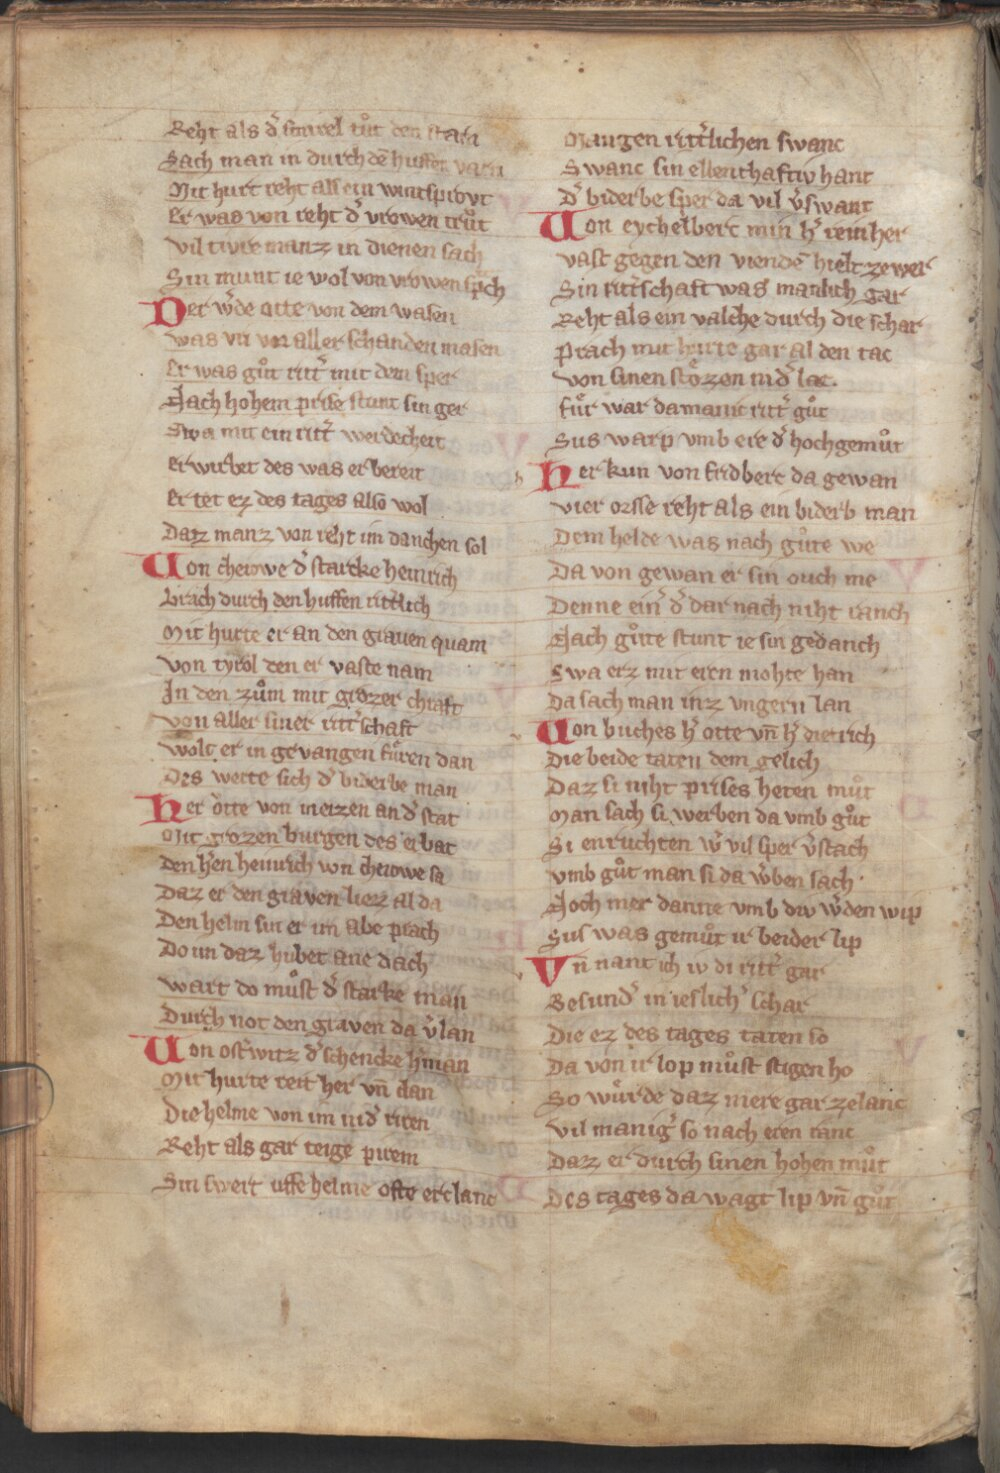 Reht als d̉ smirel tůt den starn
Sach man in durch dē huffen varn
Mit hurt reht als ein wintsprovt
Er was von reht d̉ vrowen trůt
Vil tivre manz in dienen sach
Sin munt ie wol von vrowen sp̃ch
Der w̉de otte von dem wasen
was vri vor aller schanden masen
Er was gůt ritt̉ mit dem sper
Nach hohem prise stunt sin ger
Swa mit ein ritt̉ werdecheit
Erwirbet des was er bereit
Er tet ez des tages also wol
Daz manz von reht im danchen sol
Von chevwe d̉ starcke heinrich
brach durch den huffen rittlich
Mit hurte er an den graven quam
von tyrol den er vaste nam
In den zům mit grozer chraft
von aller siner ritt̉schaft
wolt er in gevangen fůren dan
Des werte sich d̉ biderbe man
Her otte von meizen an d̉ stat
Mit grozen burgen des erbat
den h̉en heinrich von chevwe sa
Daz er den graven liez al da
Den helm sin er im abe prach
Do im daz hubet ane dach
wart do můst d̉ starke man
Durch not den graven da v̉lan
Von ost̉witz d̉ schencke h̉man
Mit hurte reit her vn̄ dan
Die helme von im nid̉ riten
Reht als gar teige pirem
Sin swert uffe helme ofte erclanc
Mangen ritt̉lichen swanc
Swanc sin ellenthaftiv hant
D̉ biderbe sper da vil v̉swant
Von eychelberc min h̉ reinher
vast gegen den viendē hielt ze wer
Sin ritt̉schaft was manlich gar
Reht als ein valche durch die schar
Prach mit hurte gar al den tac
von sinen stözen nid̉ lac
für war da manic ritt̉ gůt
Sus warp vmb ere d̉ hochgemůt
Her kun von fridberc da gewan
vier orsse reht als ein biderb man
Dem helde was nach gůte we
Da von gewan er sin ouch me
Denne ein̉ d̉ dar nach niht ranch
Nach gůte stunt ie sin gedanch
Swa erz mit eren mohte han
Da sach man inz vngern lan
Von buches h̉ otte vn̄ h̉ dietrich
Die beide taten dem gelich
Daz si niht prises heten můt
Man sach si werben da vmb gůt
Si enruchten w̉ vil sper v̉stach
vmb gůt man si da w̉ben sach
Noch mer danne vmb div w̉den wip
Sus was gemůt ir beider lip
Vn̄ nant ich iv di ritt̉ gar
Besund̉ in ieslich̉ schar
Die ez des tages taten so
Da von ir lop můst stigen ho
So würde daz mere gar ze lanc
vil manig̉ so nach eren ranc
Daz er durch sinen hohen můt
Des tages da wagt lip vn̄ gůt